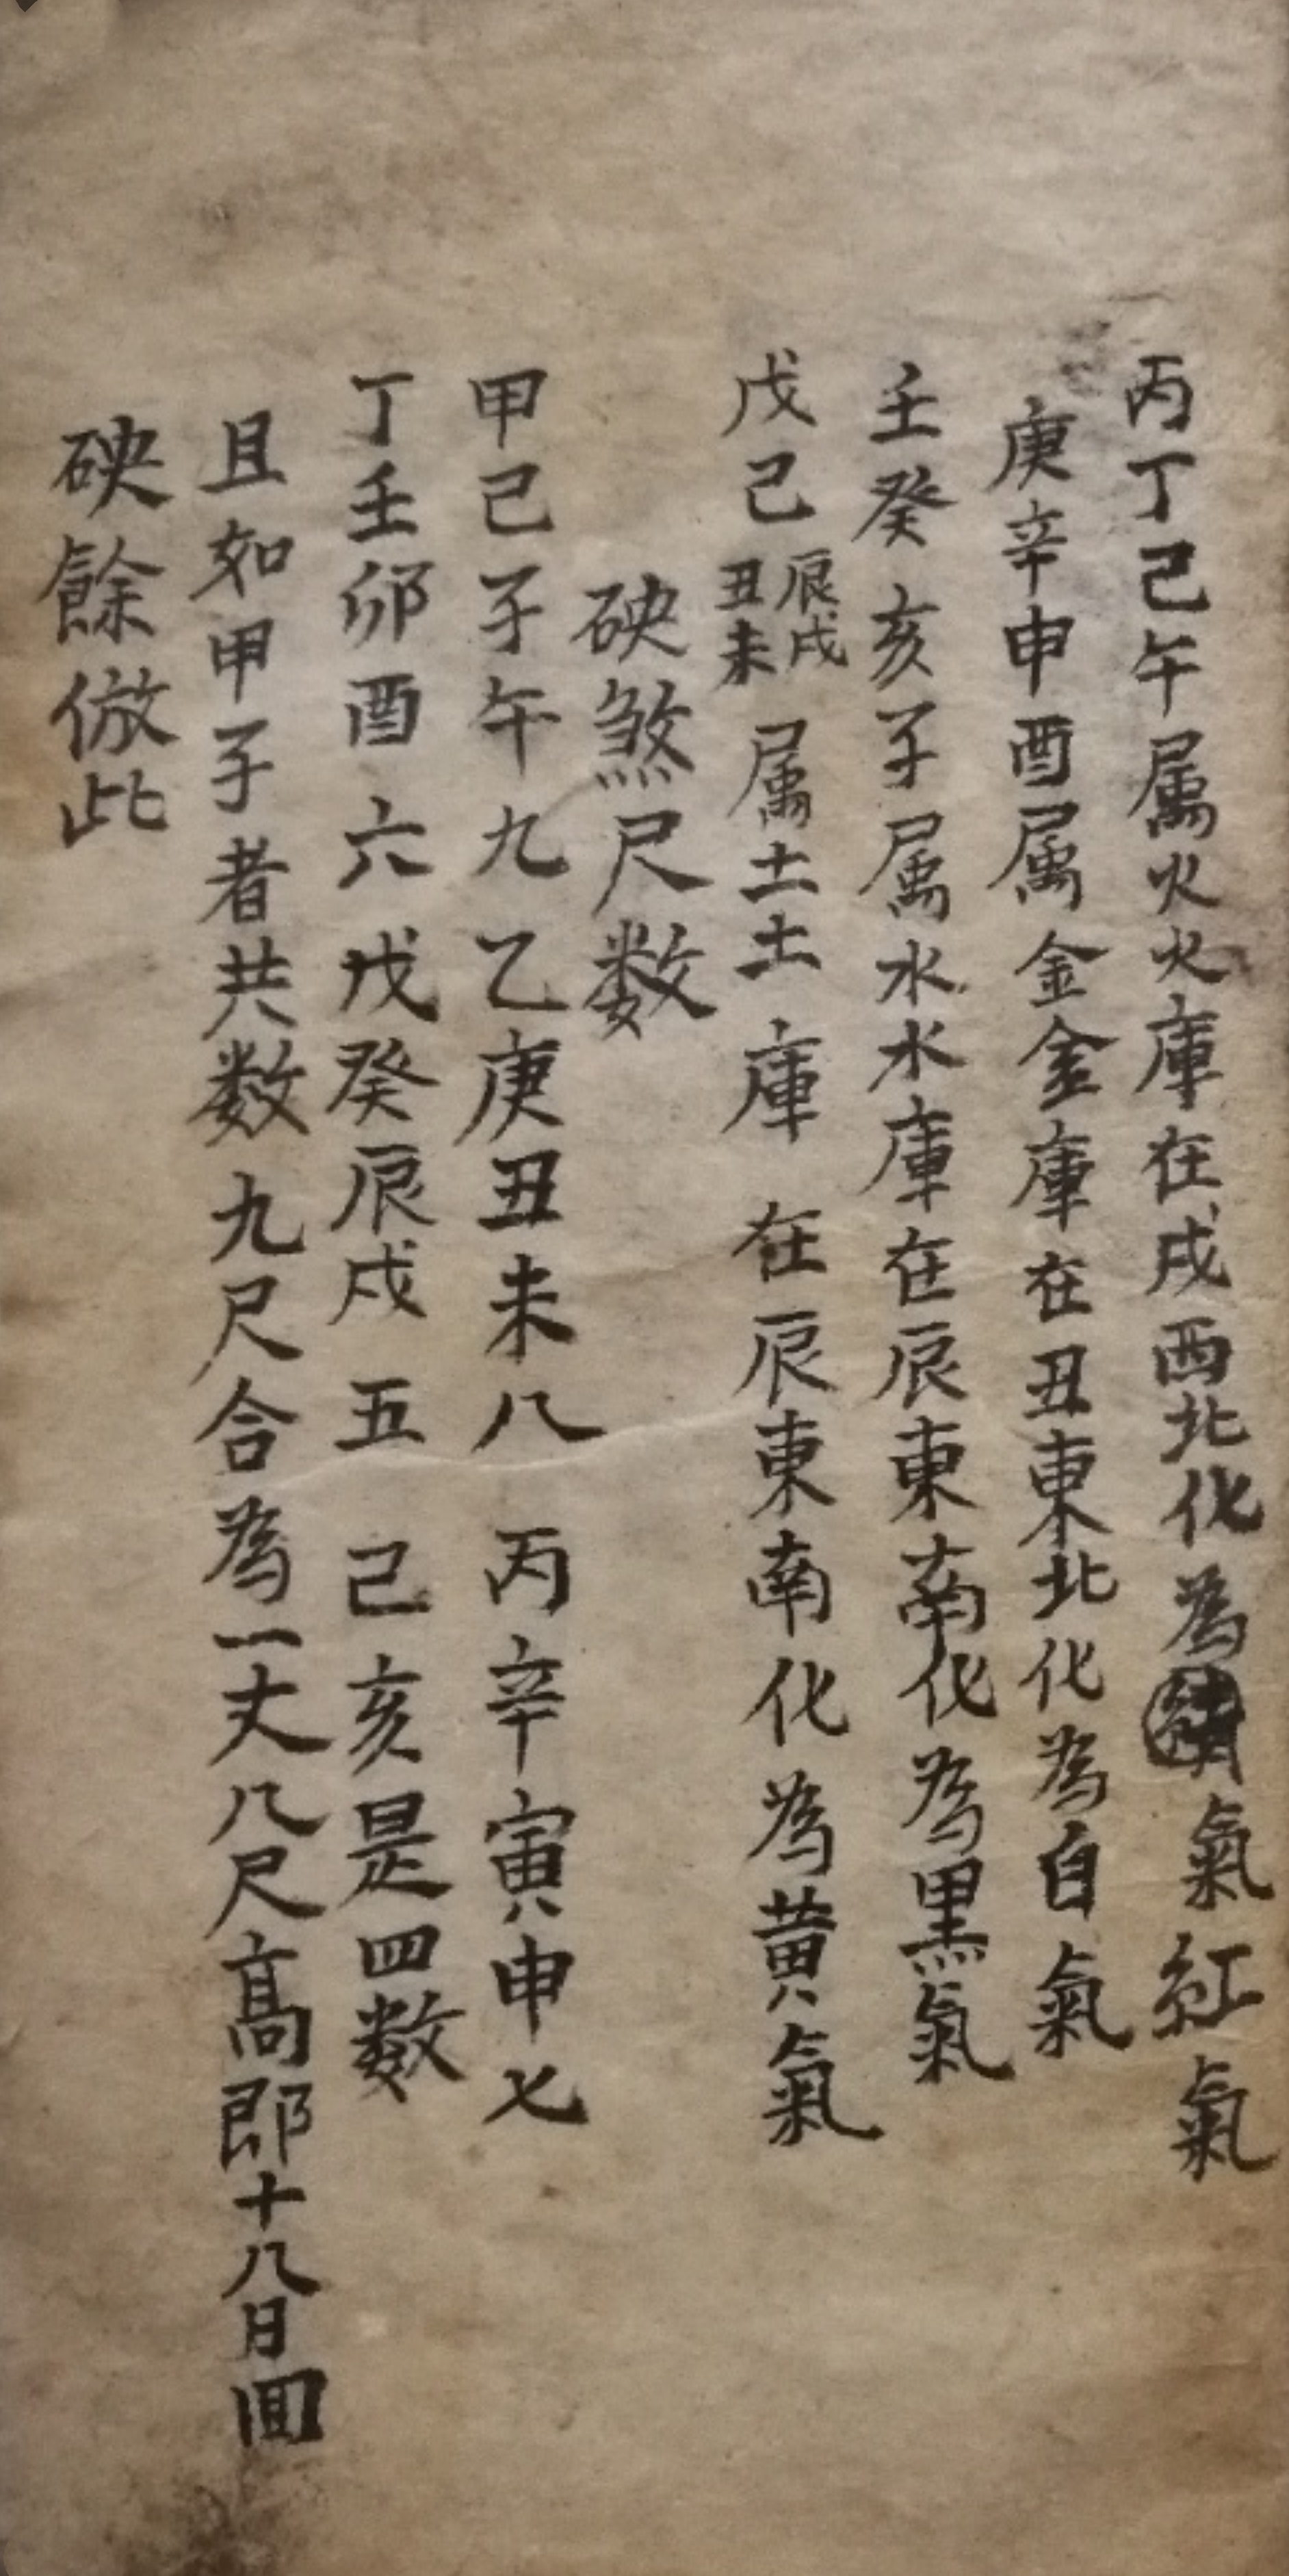 丙丁己午属火火庫在戌西北化為氣紅氣
庚辛申酉属金金庫在丑東北化為自氣
壬癸亥子属水水庫在辰東南化為黒氣
戊己辰戌丑未属土土庫在辰東南化為黄氣
砄煞尺数
甲己子午九乙庚丑未八丙辛寅申七
丁壬卯酉六戊癸辰戌五己亥是四数
且如甲子者共数九尺合為一丈八尺髙即十八日囬
砄餘倣此